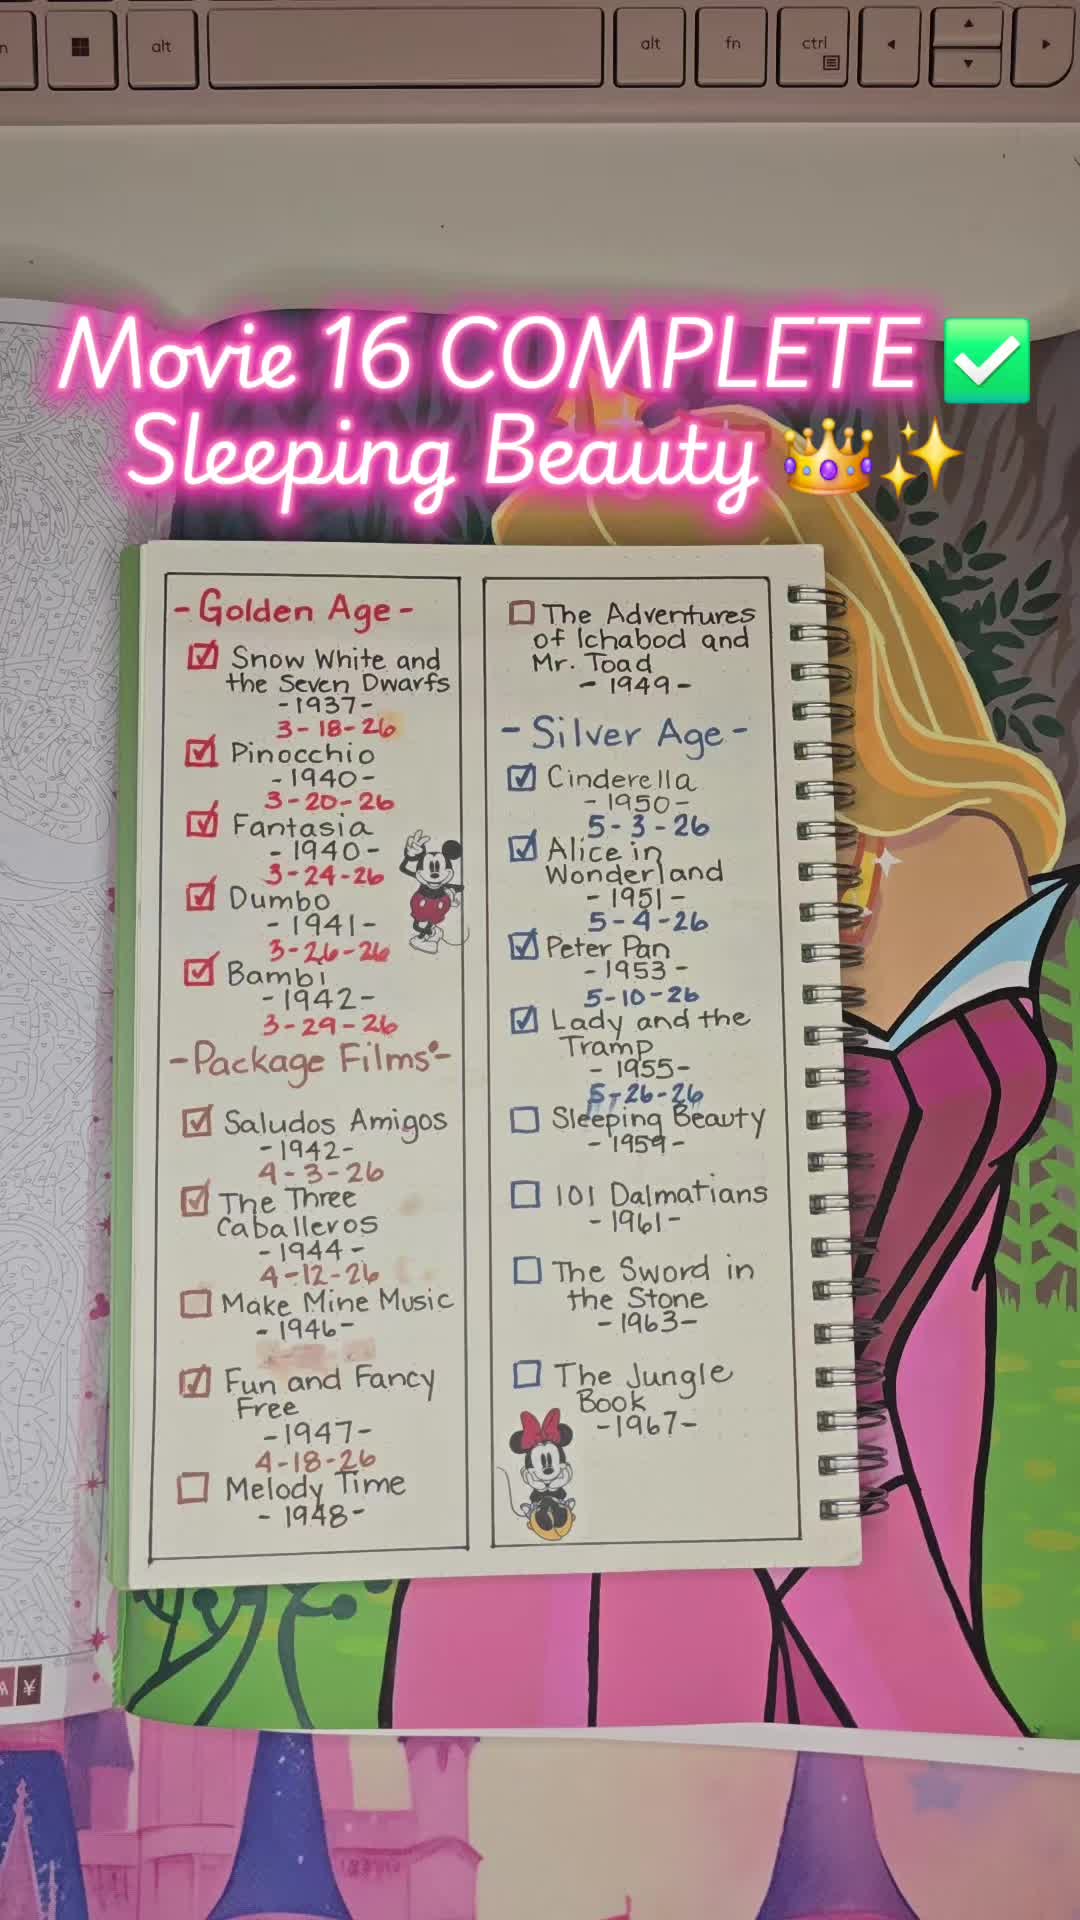 alt
alt
fn
ctrl
Movie 16 COMPLETE ✅
Sleeping Beauty 👑✨
- Golden Age -
Snow White and
the Seven Dwarfs
- 1937 -
3-18-26
Pinocchio
- 1940 -
3-20-26
Fantasia
- 1940 -
3-24-26
Dumbo
- 1941 -
3-26-26
Bambi
- 1942 -
3-29-26
- Package Films -
Saludos Amigos
- 1942 -
4-3-26
The Three
Caballeros
- 1944 -
4-12-26
Make Mine Music
- 1946 -
Fun and Fancy
Free
- 1947 -
4-18-26
Melody Time
- 1948 -
The Adventures
of Ichabod and
Mr. Toad
- 1949 -
- Silver Age -
Cinderella
- 1950 -
5-3-26
Alice in
Wonderland
- 1951 -
5-4-26
Peter Pan
- 1953 -
5-10-26
Lady and the
Tramp
- 1955 -
5-26-26
Sleeping Beauty
- 1959 -
101 Dalmatians
- 1961 -
The Sword in
the Stone
- 1963 -
The Jungle
Book
- 1967 -
¥